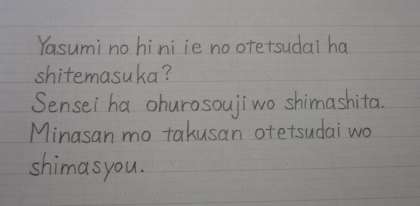 Yasumi no hi ni ie no otetsudai ha
shitemasuka?
Sensei ha ohurosouji wo shimashita.
Minasan mo takusan otetsudai wo
shimasyou.